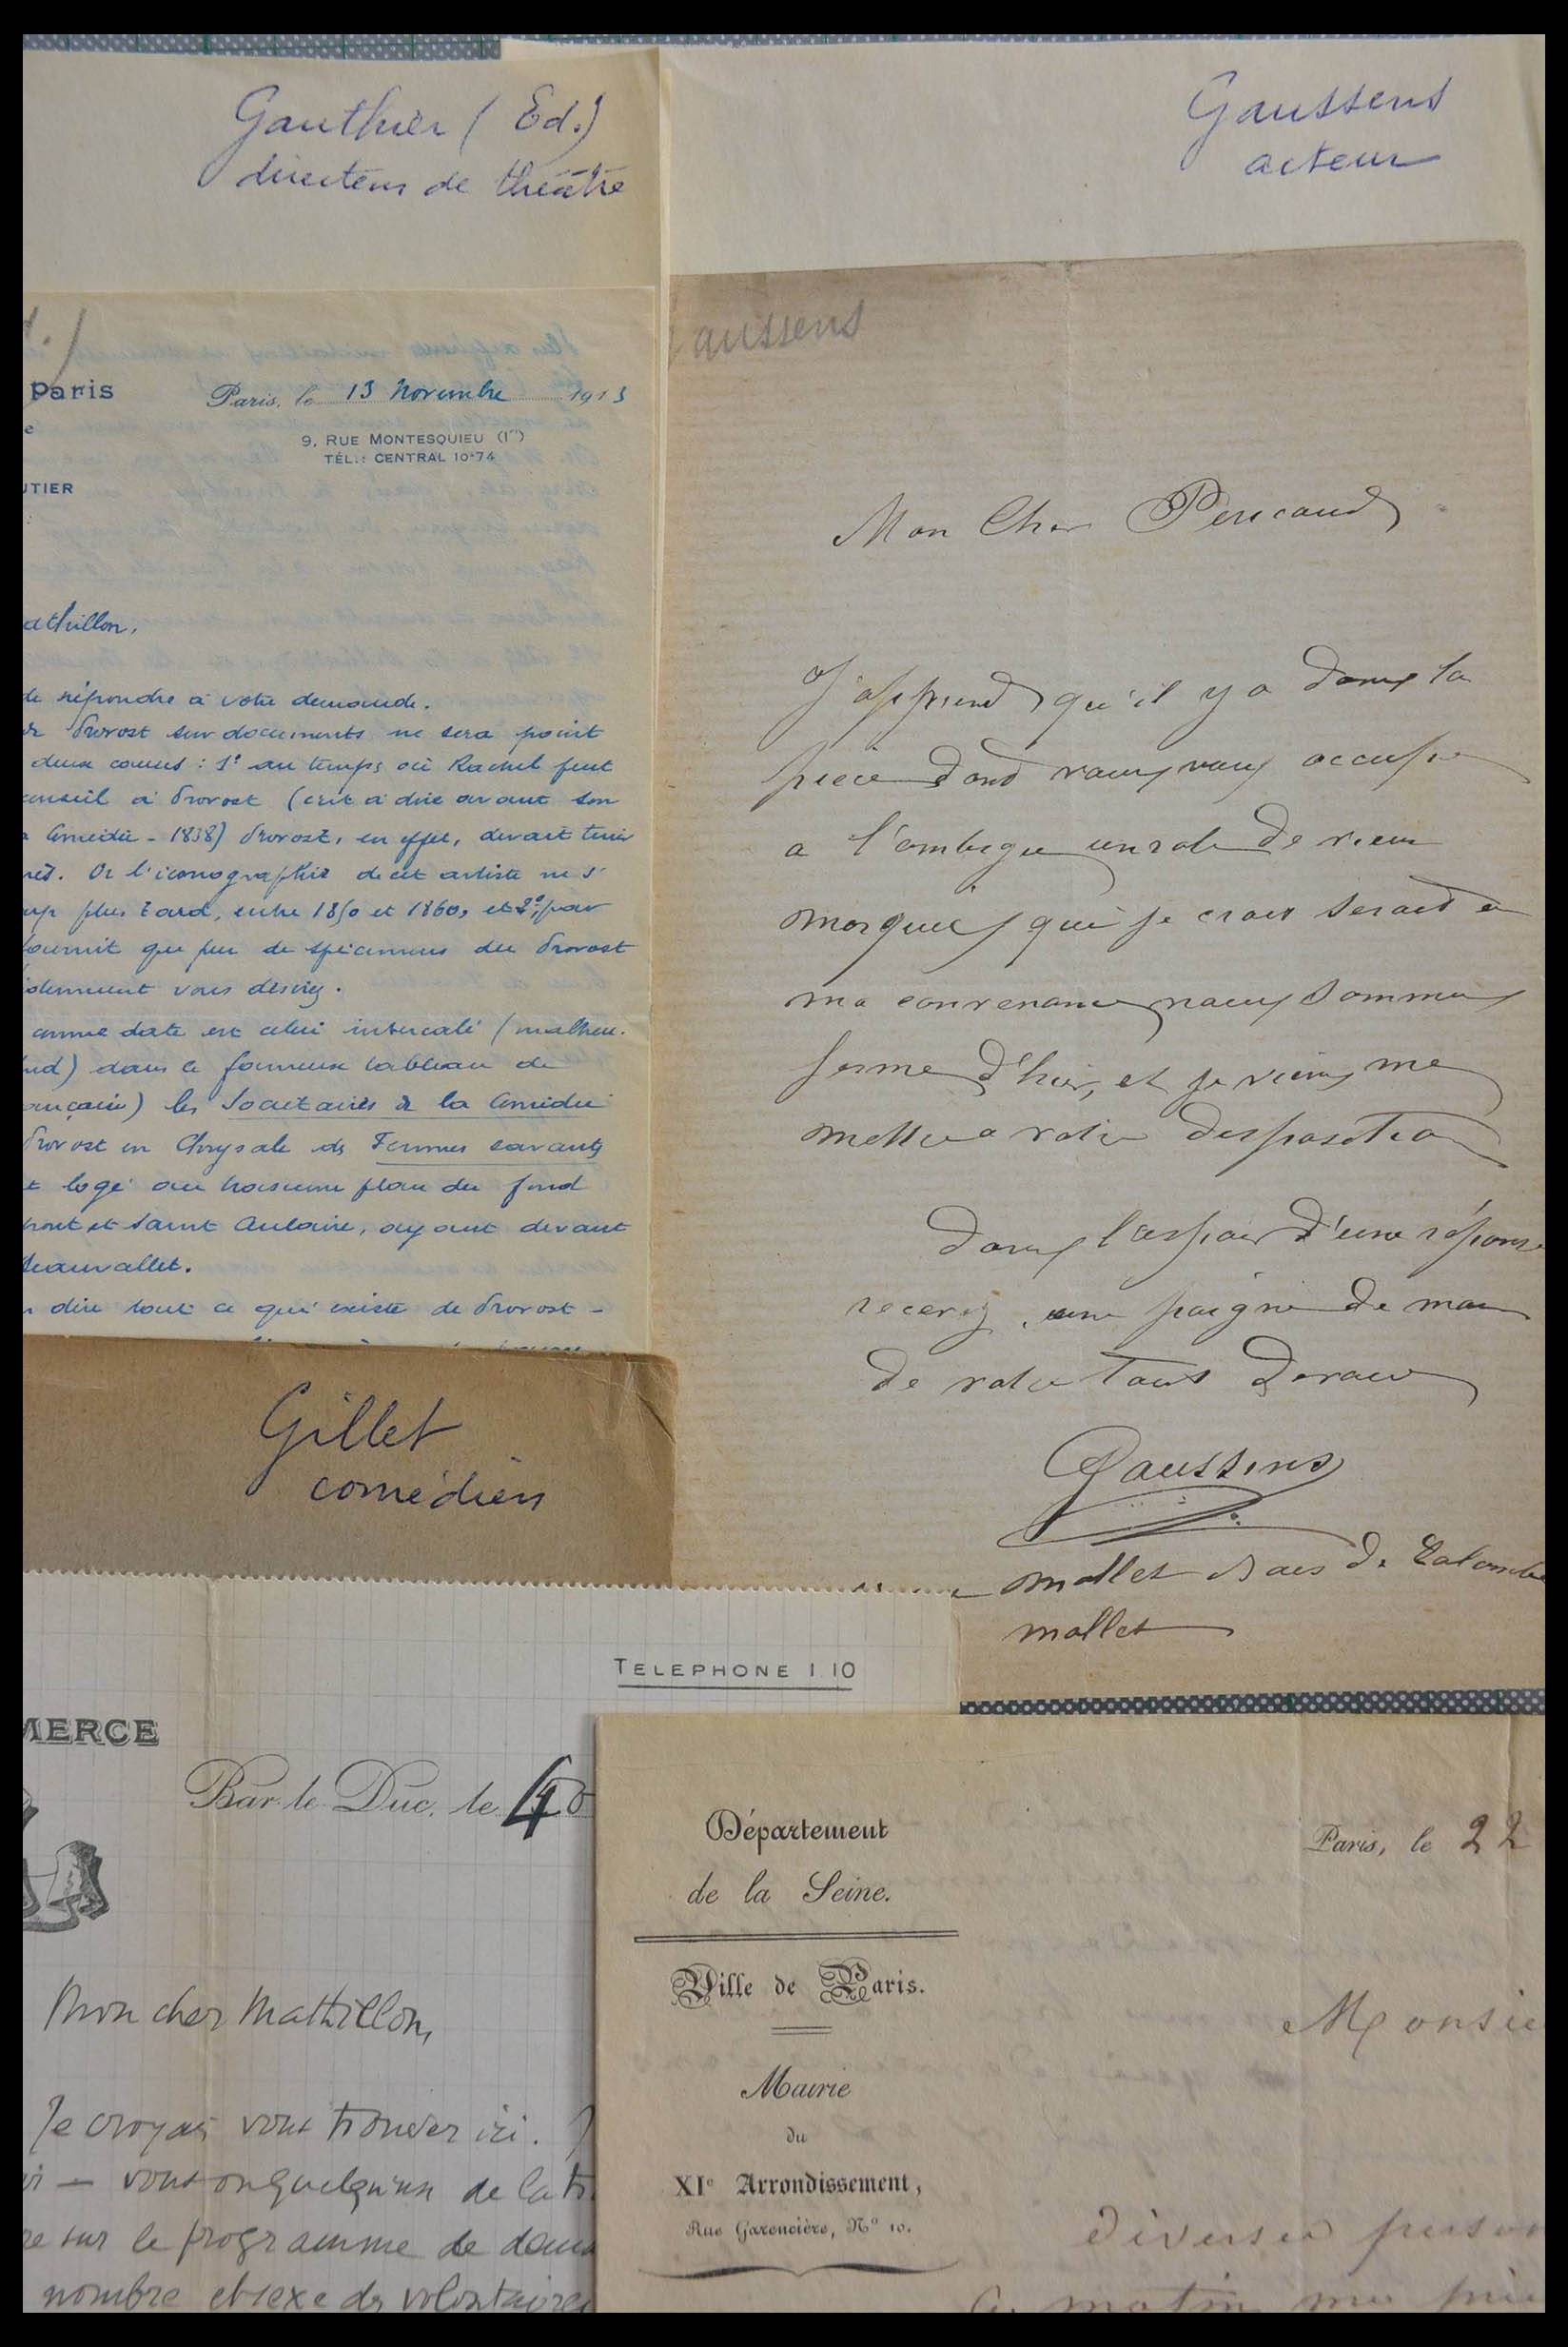 Gauthier (Ed.)
directeur de théâtre
Paris
Paris, le 13 Novembre 1913
9, RUE MONTESQUIEU (1er)
TÉL.: CENTRAL 10-74
UTIER
athillon,
de répondre à votre demande.
Provost sur documents ne sera point
deux causes : 1° au temps où Rachel fut
conseil à Provost (c'est à dire avant son
Comédie - 1838) Provost, en effet, devait tenir
Or l'iconographie de cet artiste ne s'
plus tard, entre 1850 et 1860, et 2°, par
fournit que peu de spécimens du Provost
vous désiriez.
comme date est celui intercalé (malheu-
dans le fameux tableau de
ançaise) les Sociétaires de la Comédie
Provost en Chrysale des Femmes savantes
logé au troisième plan du fond
et Saint Aulaire, ayant devant
Beauvallet.
dire tout ce qui existe de Provost -
Gaussens
acteur
aussens
Mon Cher Péricaud
J'apprend qu'il y a dans la
piece dont vous vous occupe
a l'ambigu un role de vieux
qui je crois serait a
ma convenance nous sommes
ferme d'hier, et je viens me
mettre a votre disposition
dans l'espoir d'une réponse
recevez une poigne de main
de votre tout devoue
Gaussens
mallet
Gillet
comédien
TELEPHONE 1.10
MERCE
Bar le Duc, le 4
Mon cher Mathillon,
Je croyais vous trouver ici. J
— vous ou quelqu'un de la
sur le programme de
nombre et sexe des volontaires
Département
de la Seine.
Ville de Paris.
Mairie
du
XIe Arrondissement,
Rue Garencière, No 10.
Paris, le 22
Monsie
diverses person
matin